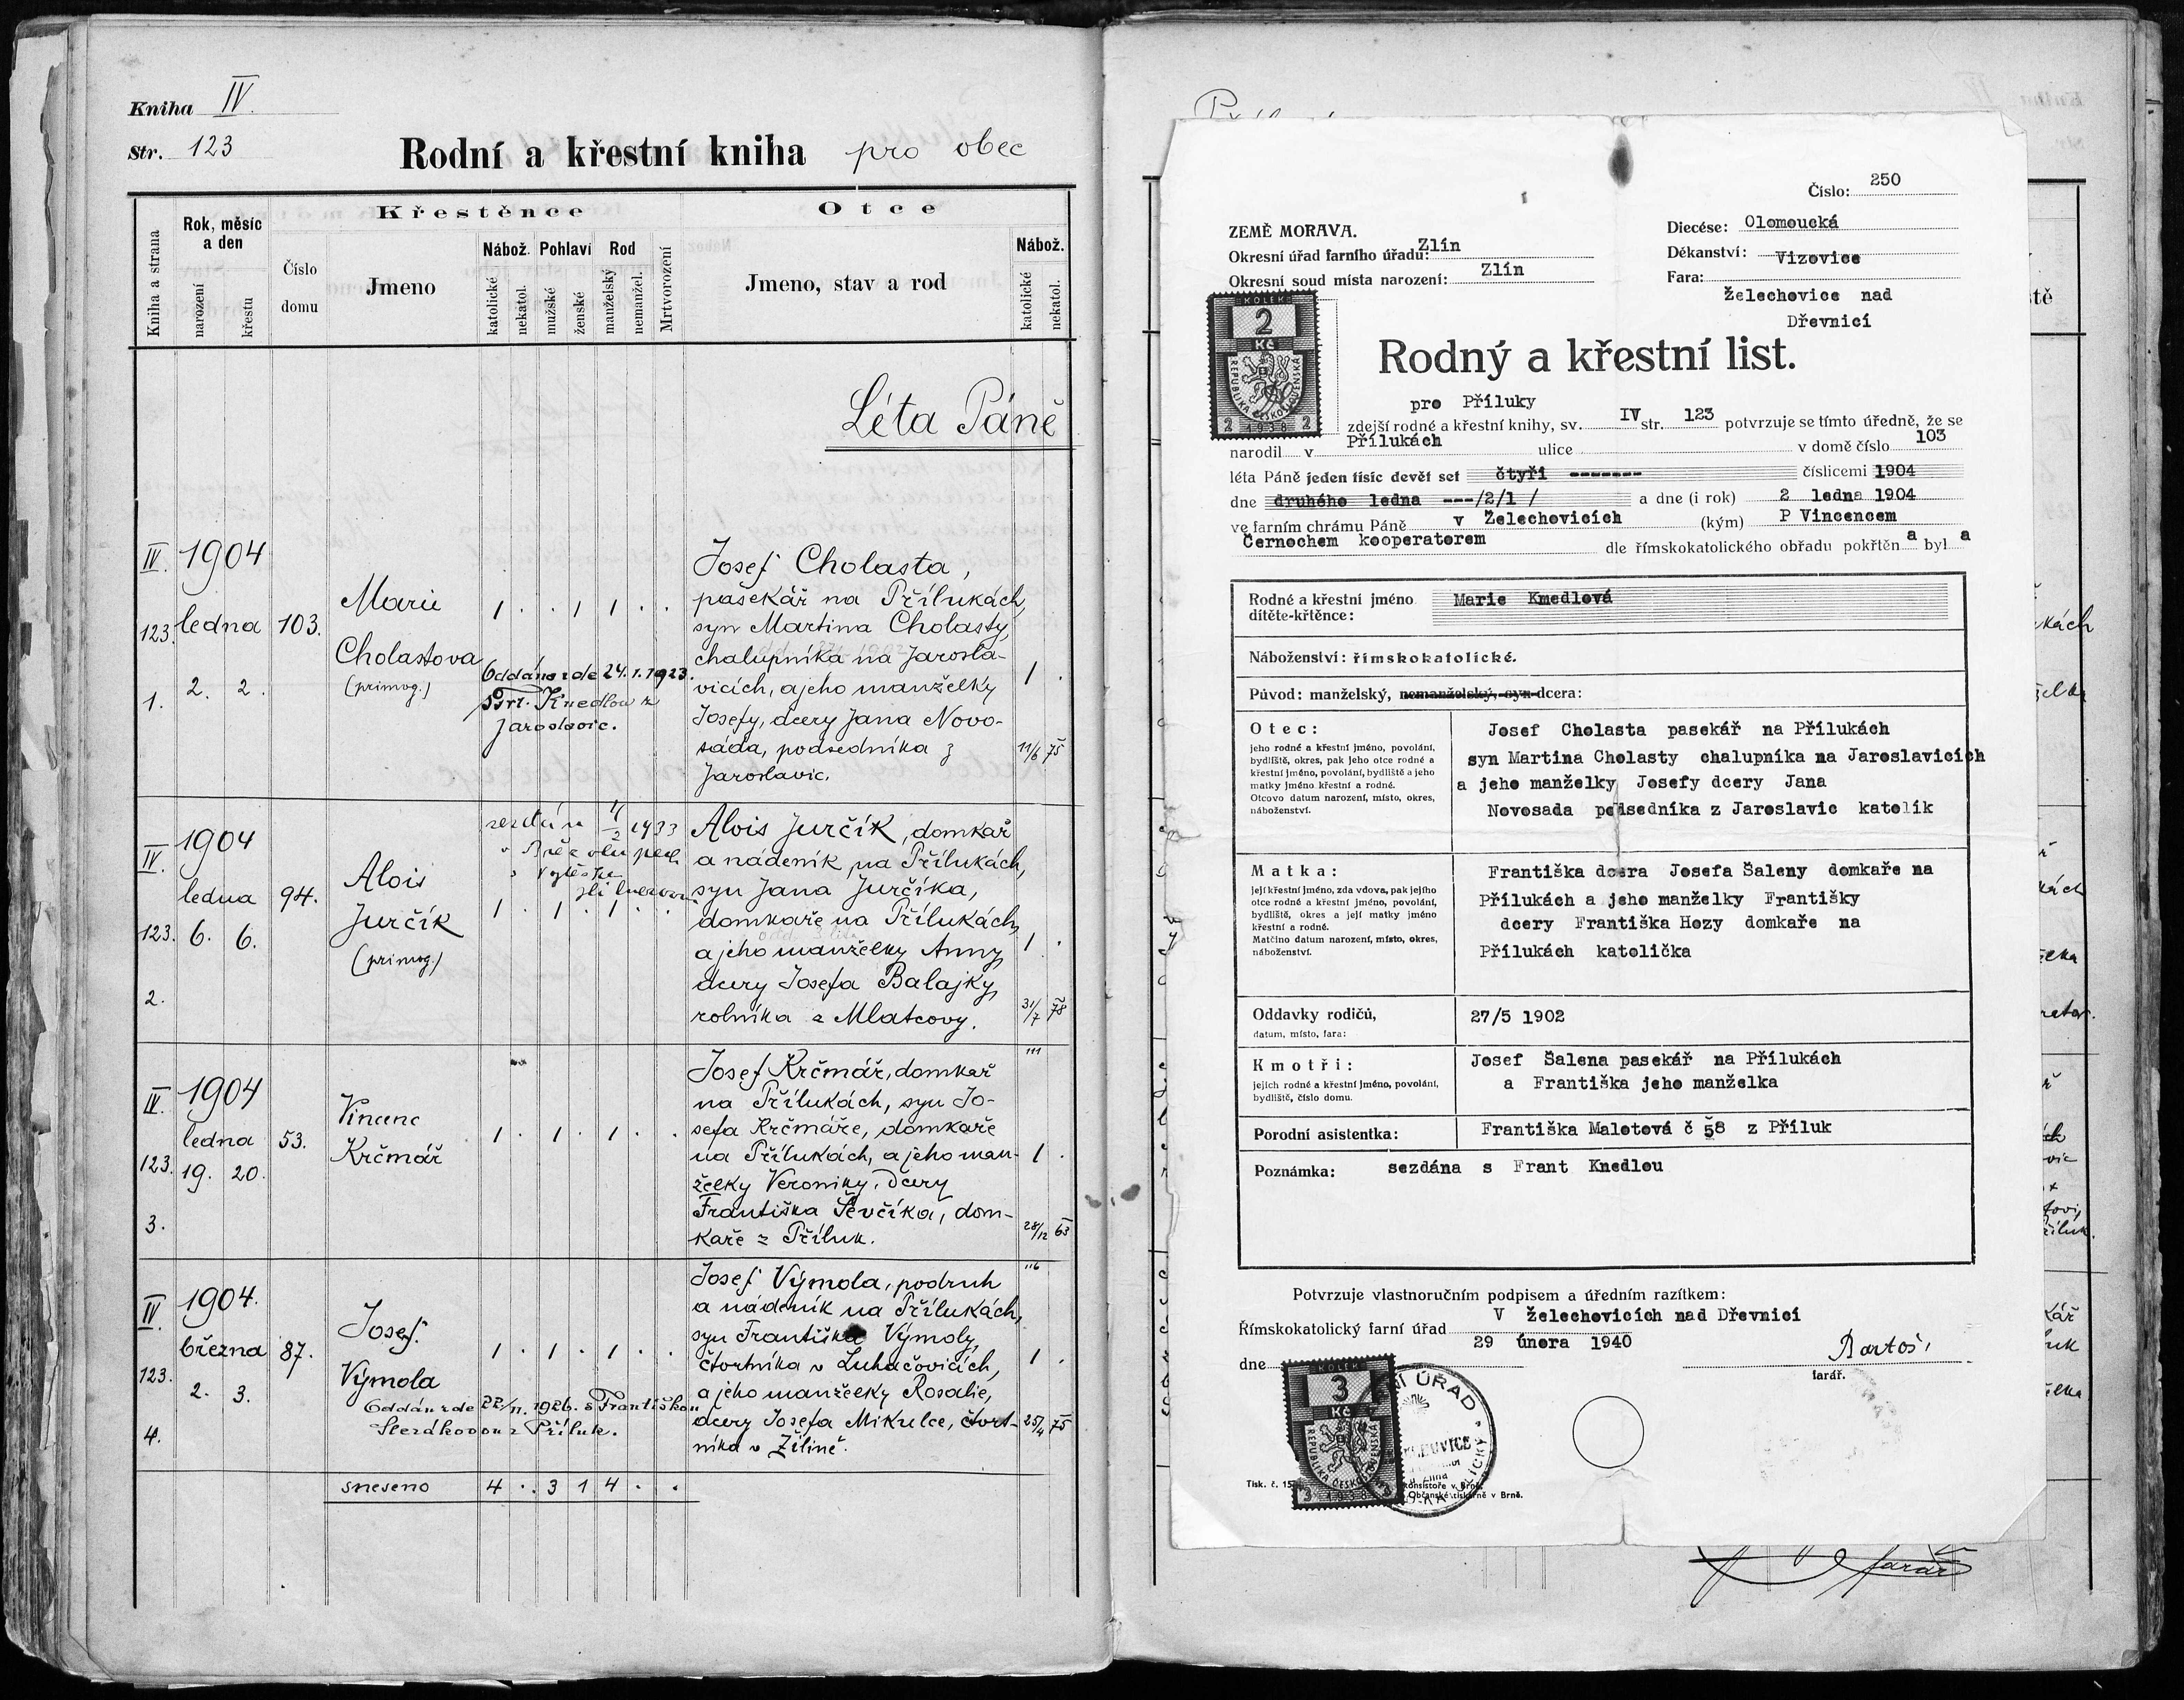 Kniha IV.
Str. 123
Rodní a křestní kniha pro obec
Kniha a strana
Rok, měsíc a den
narození
křestu
Číslo domu
Křestěnce
Jmeno
Nábož.
katolické
nekatol.
Pohlaví
mužské
ženské
Rod
manželský
nemanžel.
Mrtvorození
Otce
Jmeno, stav a rod
Nábož.
katolické
nekatol.
Léta Páně
IV. 123. 1.
1904
ledna
2. 2.
103.
Marie
Cholastova
(primog.)
1 . . 1 1 . .
Oddána zde 24.1.1923.
Frt. Knedlou z
Jaroslavic.
Josef Cholasta,
pasekář na Přílukách,
syn Martina Cholasty,
chalupníka na Jarosla-
vicích, a jeho manželky
Josefy, dcery Jana Novo-
sáda, podsedníka z
Jaroslavic.
1 .
11/6 75
IV. 123. 2.
1904
ledna
6. 6.
94.
Alois
Jurčík
(primog.)
1933
1 . 1 . 1 . .
Alois Jurčík, domkař
a nádeník na Přílukách,
syn Jana Jurčíka,
domkaře na Přílukách,
a jeho manželky Anny,
dcery Josefa Balajky,
rolníka z Mlatcovy.
1 .
31/7 78
IV. 123. 3.
1904
ledna
19. 20.
53.
Vincenc
Krčmář
1 . 1 . 1 . .
Josef Krčmář, domkař
na Přílukách, syn Jo-
sefa Krčmáře, domkaře
na Přílukách, a jeho man-
želky Veroniky, dcery
Františka Ševčíka, dom-
kaře z Příluk.
1 .
28/12 63
IV. 123. 4.
1904.
března
2. 3.
87.
Josef
Výmola
1 . 1 . 1 . .
Oddán zde 22/11. 1926. s Františkou
Slezákovou z Příluk.
Josef Výmola, podruh
a nádeník na Přílukách,
syn Františka Výmoly,
čtvrtníka v Luhačovicích,
a jeho manželky Rosalie,
dcery Josefa Mikulce, čtvrt-
níka v Želině.
1 .
25/4 75
sneseno 4 . . 3 1 4 . .
Číslo: 250
ZEMĚ MORAVA.
Okresní úřad farního úřadu: Zlín
Okresní soud místa narození: Zlín
Diecése: Olomoucká
Děkanství: Vizovice
Fara:
Želechovice nad
Dřevnicí
KOLEK
2
Kč
REPUBLIKA ČESKOSLOVENSKÁ
2 1938 2
Rodný a křestní list.
pro Příluky
zdejší rodné a křestní knihy, sv. IV str. 123 potvrzuje se tímto úředně, že se
narodil v Přílukách ulice v domě číslo 103
léta Páně jeden tisíc devět set čtyři ------- číslicemi 1904
dne druhého ledna ---/2/1 / a dne (i rok) 2 ledna 1904
ve farním chrámu Páně v Želechovicích (kým) P Vincencem
Černochem kooperatorem dle římskokatolického obřadu pokřtěn a byl a
Rodné a křestní jméno dítěte-křtěnce: Marie Kmedlová
Náboženství: římskokatolické.
Původ: manželský, nemanželský, syn-dcera:
Otec:
jeho rodné a křestní jméno, povolání,
bydliště, okres, pak jeho otce rodné a
křestní jméno, povolání, bydliště a jeho
matky jméno křestní a rodné.
Otcovo datum narození, místo, okres,
náboženství.
Josef Cholasta pasekář na Přílukách
syn Martina Cholasty chalupníka na Jaroslavicích
a jeho manželky Josefy dcery Jana
Novosada podsedníka z Jaroslavic katolík
Matka:
její křestní jméno, zda vdova, pak jejího
otce rodné a křestní jméno, povolání,
bydliště, okres a její matky jméno
křestní a rodné.
Matčino datum narození, místo, okres,
náboženství.
Františka dcera Josefa Šaleny domkaře na
Přílukách a jeho manželky Františky
dcery Františka Hozy domkaře na
Přílukách katolička
Oddavky rodičů,
datum, místo, fara:
27/5 1902
Kmotři:
jejich rodné a křestní jméno, povolání,
bydliště, číslo domu.
Josef Šalena pasekář na Přílukách
a Františka jeho manželka
Porodní asistentka: Františka Maletová č 58 z Příluk
Poznámka: sezdána s Frant Knedlou
Potvrzuje vlastnoručním podpisem a úředním razítkem:
V Želechovicích nad Dřevnicí
Římskokatolický farní úřad
dne 29 února 1940
Bartoš
farář.
KOLEK
3
Kč
REPUBLIKA ČESKOSLOVENSKÁ
3 1938 3
Tisk. č. 15
konsistoře v Brně.
Občanské tiskárně v Brně.
farář